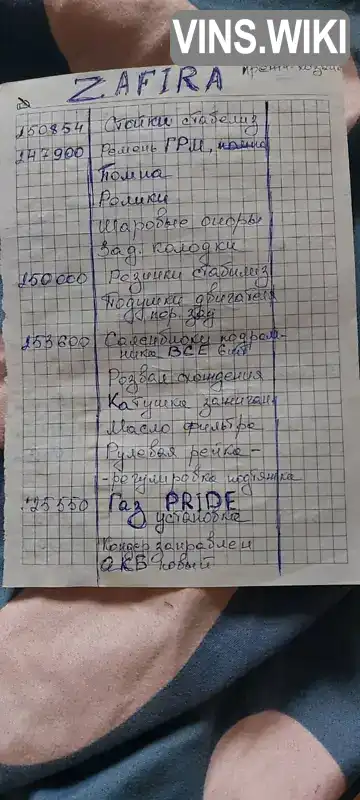 VINS.WIKI
ZAFIRA
150854 Стойки стабелиз
147900 Ремень ГРМ, помпа
Помпа
Ролики
Шаровые опоры
Зад. колодки
150000 Резинки стабелиз
Подушки двигателя
пер. зад
153600 Саленблоки подрам-
ника ВСЕ 6шт
Розвал схождения
Катушка зажиган
Масло фильтра
Рулевая рейка -
- регулировка подтяжка
125550 Газ PRIDE
установка
Кондер заправлен
АКБ новый